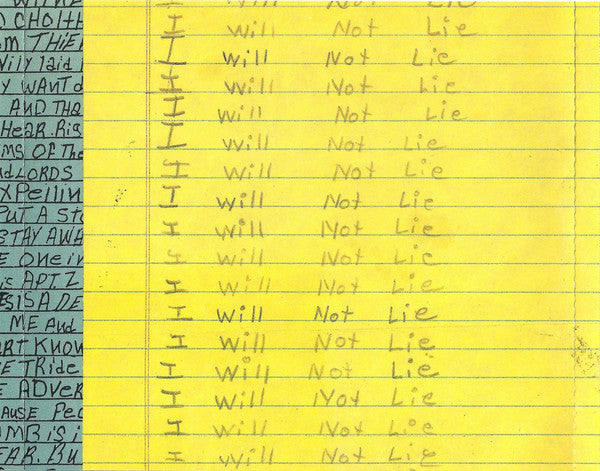 CHOLTH
THIE
Willy laid
WANT
AND THA
HEAR. Rig
MS OF The
LORDS
XPellin
PUT A Sto
STAY AWA
E One in
is APT. 2
ES IS A DE
ME And
ORT KNOW
E TRide
E ADVER
AUSE Peo
AMB is i
FAR. Bu
I Will Not Lie
I will Not Lie
I will Not Lie
I will Not Lie
I will Not Lie
I will Not Lie
I will Not Lie
I will Not Lie
I will Not Lie
I will Not Lie
I will Not Lie
I will Not Lie
I will Not Lie
I will Not Lie
I will Not Lie
I will Not Lie
I will Not Lie